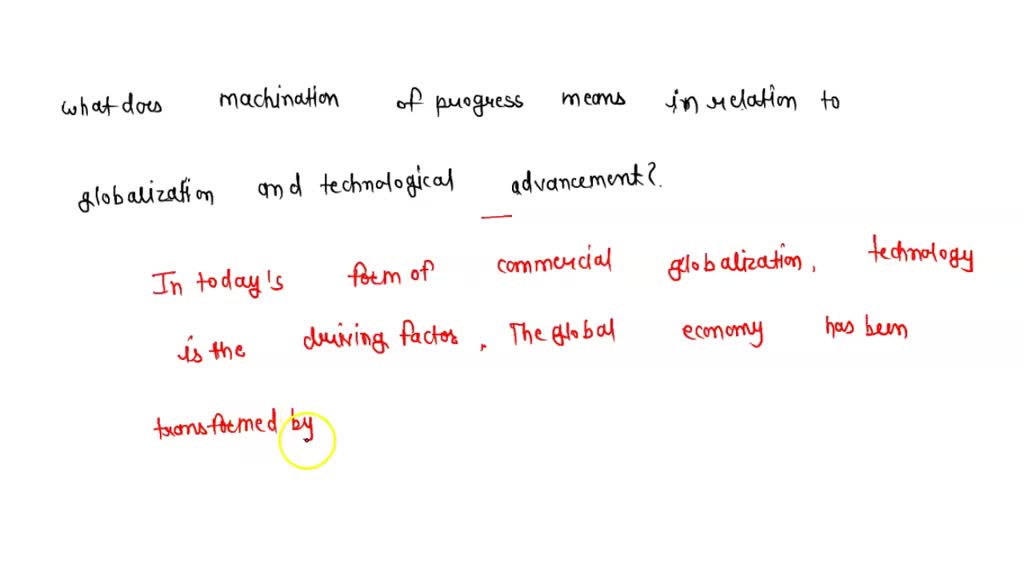 what does machination of progress means in relation to
globalization and technological advancement?
In today's form of commercial globalization, technology
is the driving factor. The global economy has been
transformed by